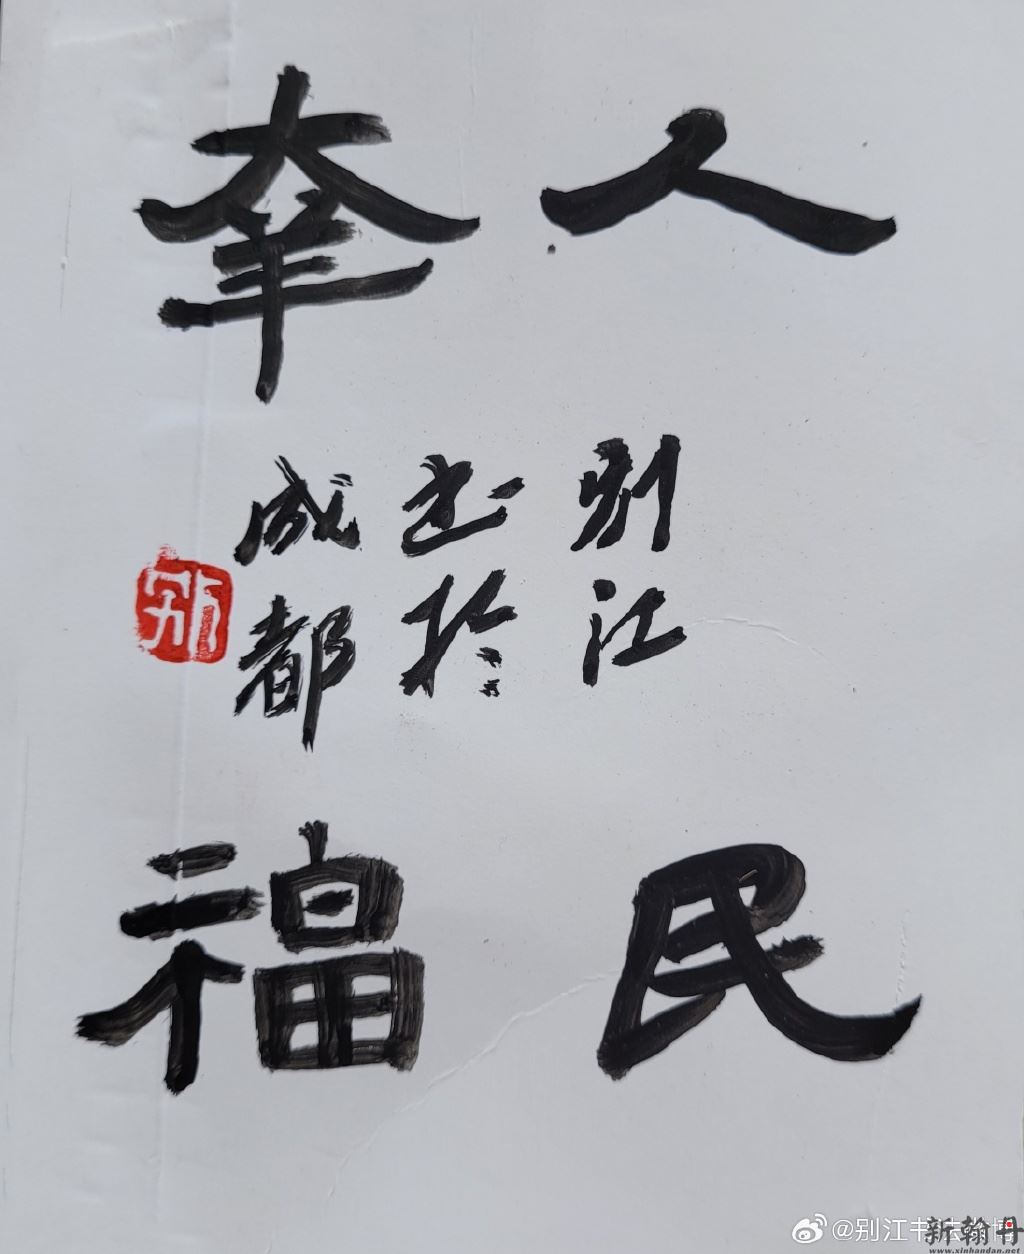 人民
幸福
别江
书於
成都
别
@别江书法
新翰丹
www.xinhandan.net